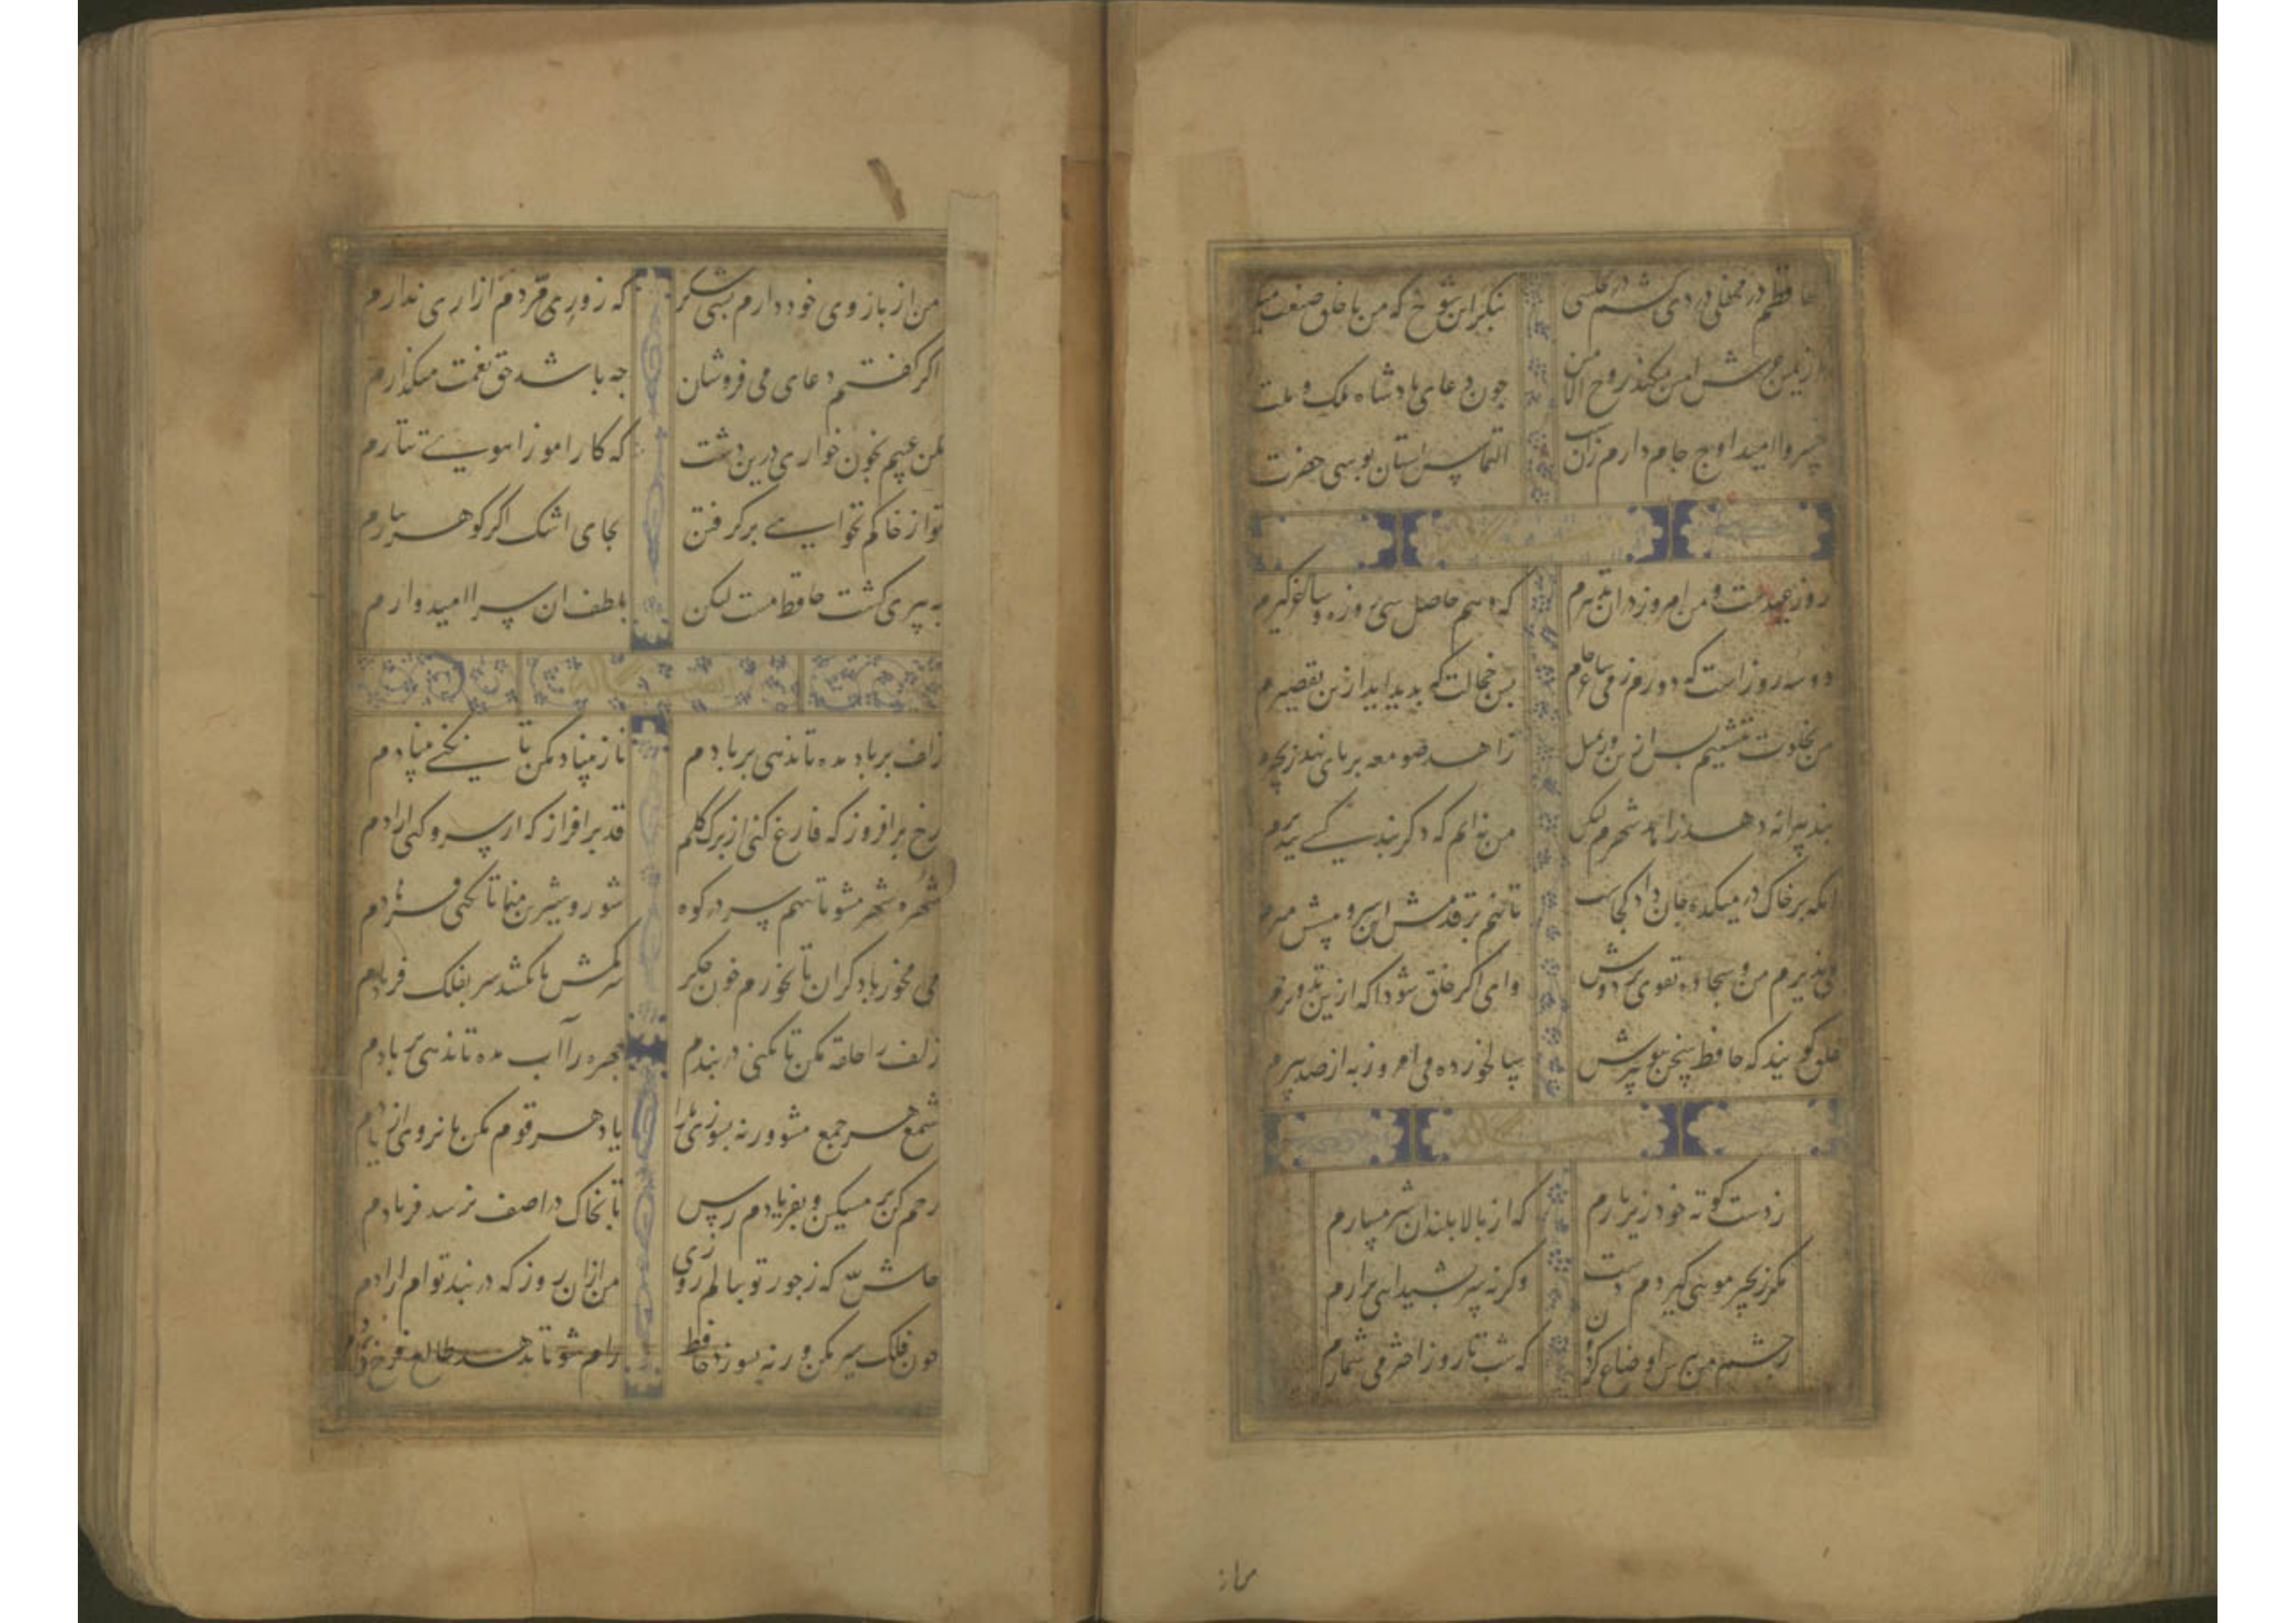 حافظم در محفلی دردی کشم در مجلسی بنکر این شوخی که من با خلق صنعت میکنم
از یمین عرش امین میکند روح الامین چون دعای پادشاه ملک و ملت
خسروا امید اوج جاه دارم زین سبب التماس استان بوسی حضرت
روز عیدست و من امروز دران تدبیرم که دهم حاصل سی روزه و ساغر کیرم
دو سه روز است که دورم ز می و ساغر و جام بس خجالت که بدید اید ازین تقصیرم
من بخلوت ننشینم پس ازین ور بمثل زاهد صومعه بر پای نهد زنجیرم
پند پیرانه دهد زاهد شهرم لیکن من نه انم که دکر پند کسی پذیرم
انکه بر خاک در میکده جان داد کجاست تا نهم بر قدمش این سر و پیشش میرم
می بزیرم من و سجاده تقوی بر دوش وای اکر خلق شود اکه ازین تزویرم
خلق کویند که حافظ سخن پیر نیوش سالخورده می امروز به از صد پیرم
ز دست کوته خود زیر بارم که از بالا بلندان شرمسارم
مکر زنجیر مویی کیردم دست وکر نه سر بشیدایی برارم
ز چشم من بپرس اوضاع کردون که شب تا روز اختر می شمارم
من از
من از بازوی خود دارم بسی شکر که زور مردم ازاری ندارم
اکر کفتم دعای می فروشان چه باشد حق نعمت میکذارم
مکن عیبم بخون خواری درین دشت که کار اموز اهوی تتارم
تو از خاکم نخواهی برکرفتن بجای اشک اکر کوهر ببارم
به پیری کشت حافظ مست لیکن بلطف ان سرا امیدوارم
زلف بر باد مده تا ندهی بر بادم ناز بنیاد مکن تا نکنی بنیادم
رخ برافروز که فارغ کنی از برک کلم قد برافراز که از سرو کنی ازادم
شهره شهر مشو تا ننهم سر در کوه شور شیرین منما تا نکنی فرهادم
می مخور با دکران تا نخورم خون جکر سر مکش تا نکشد سر بفلک فریادم
زلف را حلقه مکن تا نکنی در بندم چهره را آب مده تا ندهی بر بادم
شمع هر جمع مشو ورنه بسوزی ما را یاد هر قوم مکن تا نروی از یادم
رحم کن بر من مسکین و بفریادم رس تا بخاک در اصف نرسد فریادم
حاش لله که ز جور تو بنالم روزی من از ان روز که در بند توام ازادم
چون فلک سیر مکن ورنه بسوزد حافظ رام شو تا بدهد طالع فرخ دادم